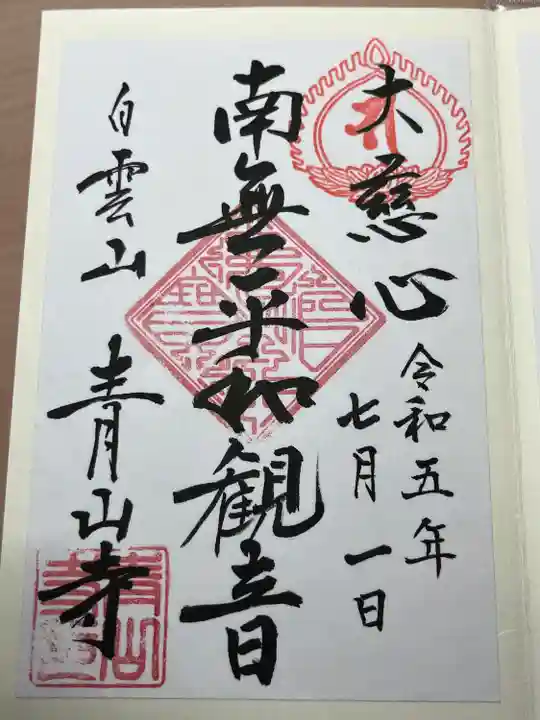 大慈心
令和五年
七月一日
南無平和観音
白雲山 青山寺